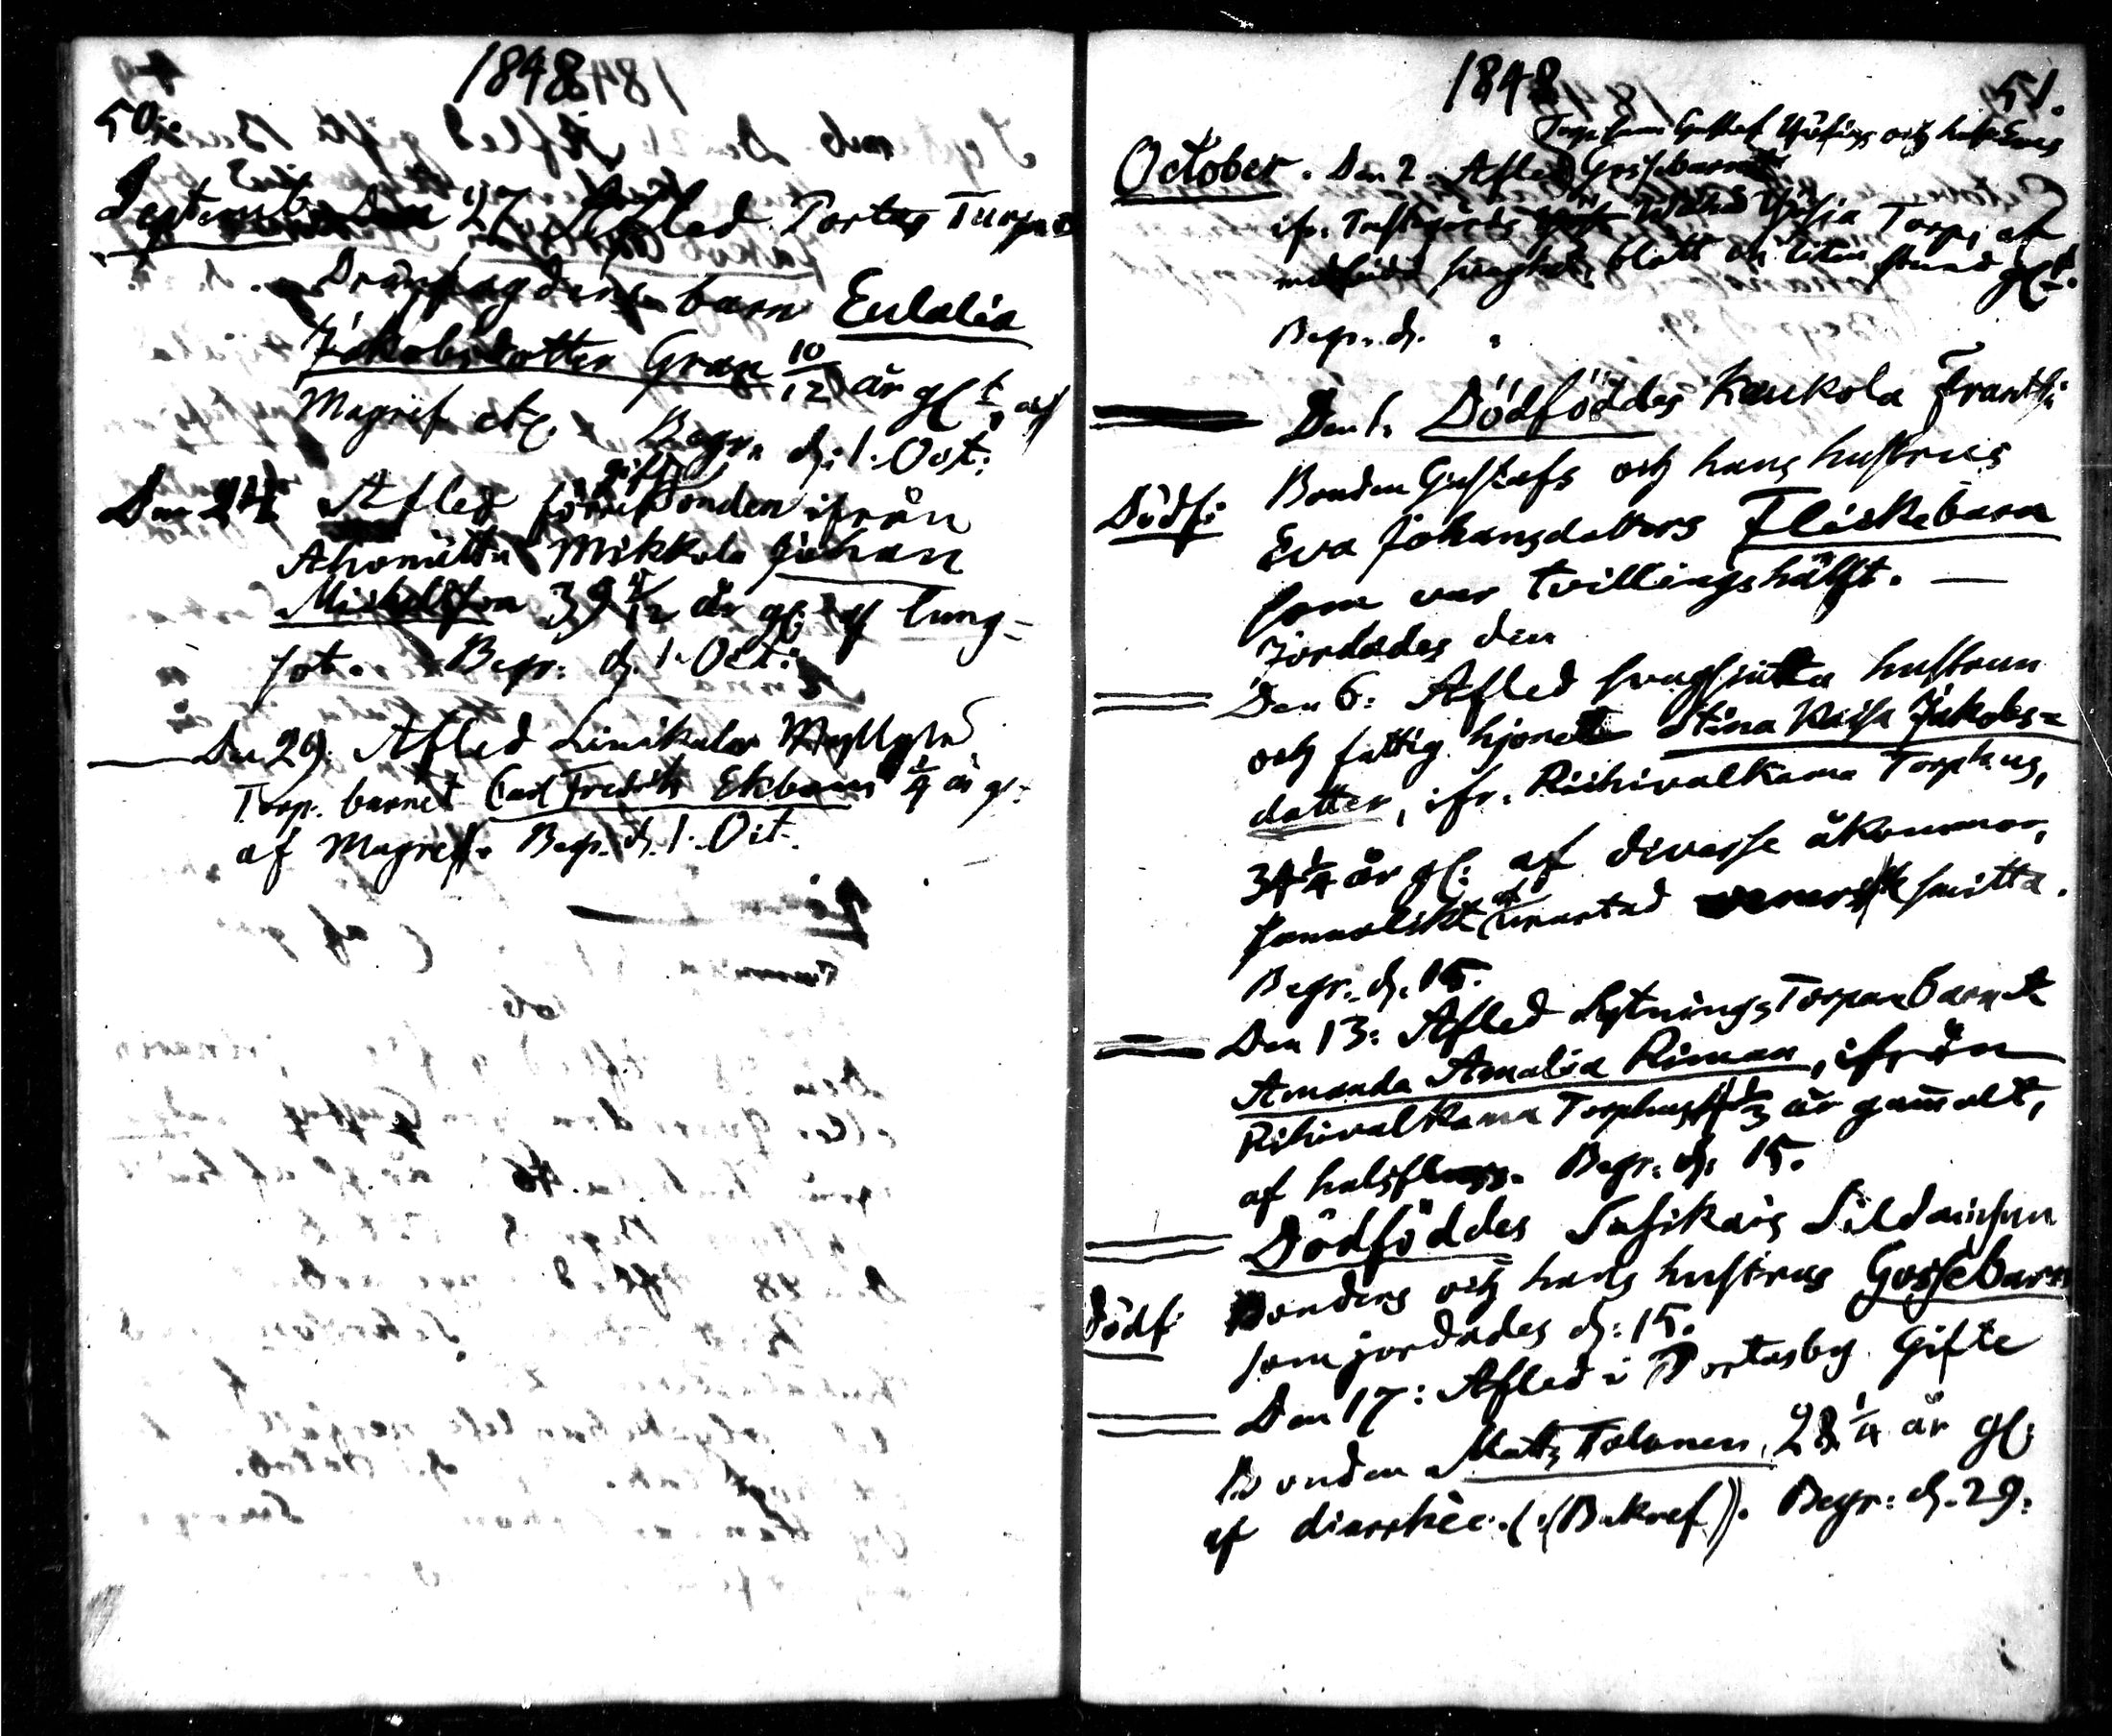 1848
50.
Septemb. den 27 Afled Portas Turpa
Drängfogdens barn Eulalia
Jakobsdotter Gran 10/12 år gl t, af
Magref etc. Begr. d. 1. Oct.
Den 24 Afled förre gift Bonden ifrån
Mikkola Johan
Michelsson 39 4/12 år gl. af lung-
sot. Begr. d. 1. Oct:
Den 29. Afled Linikala
Torp. barnet Carl Fredrik Ekbom 1/4 år gl.
af Magref. Begr. d. 1. Oct.
1848
51.
Gustaf och hustru Evas
October. Den 2. Afled Gossebarnet
ifr. Torp, af
medfödd svaghet, blott en liten stund gl t.
Begr. d. "
Den 1. Dödföddes Kaukola Franttsi
Dödf: Bonden Gustafs och hans hustrus
Eva Johansdotters Flickebarn
som var tvillingshälft. —
Jordades den
Den 6: Afled svagsinta hustrun
och fattig hjonet Stina Kaisa Jakobs=
dotter, ifr. Riihivalkama Torphus,
34 1/4 år gl: af diverse åkommor,
sannolikt af urartad venerisk smitta.
Begr. d. 15.
Den 13: Afled Lytnings Torpare barnet
Amanda Amalia Riman, ifrån
Rihivalkama Torphus, 4 1/3 år gammalt,
af halsfluss. Begr. d: 15.
Dödföddes Susikais Sildanisun
Dödf: Bondens och hans hustrus Gossebarn
som jordades d: 15.
Den 17: Afled i Portasby Gifte
Bonden Matts Tolonen, 28 1/4 år gl:
af diarrhée. (:(Bukref)). Begr: d. 29.